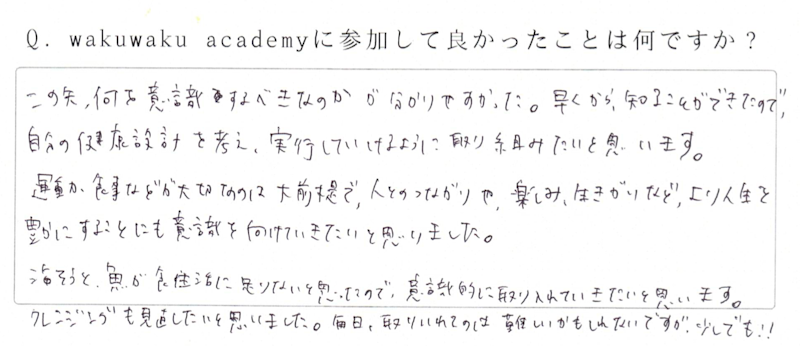 Q. wakuwaku academyに参加して良かったことは何ですか？
この先、何を意識をするべきなのかが分かりやすかった。早くから、知ることができたので、
自分の健康設計を考え、実行していけるように取り組みたいと思います。
運動か食事などが大切なのは大前提で、人とのつながりや、楽しみ、生きがいなど、より人生を
豊かにすることにも意識を向けていきたいと思いました。
海そうと、魚が食生活に足りないと思ったので、意識的に取り入れていきたいと思います。
クレンジングも見直したいと思いました。毎日、取りいれてのは難しいかもしれないですが、少しでも!!